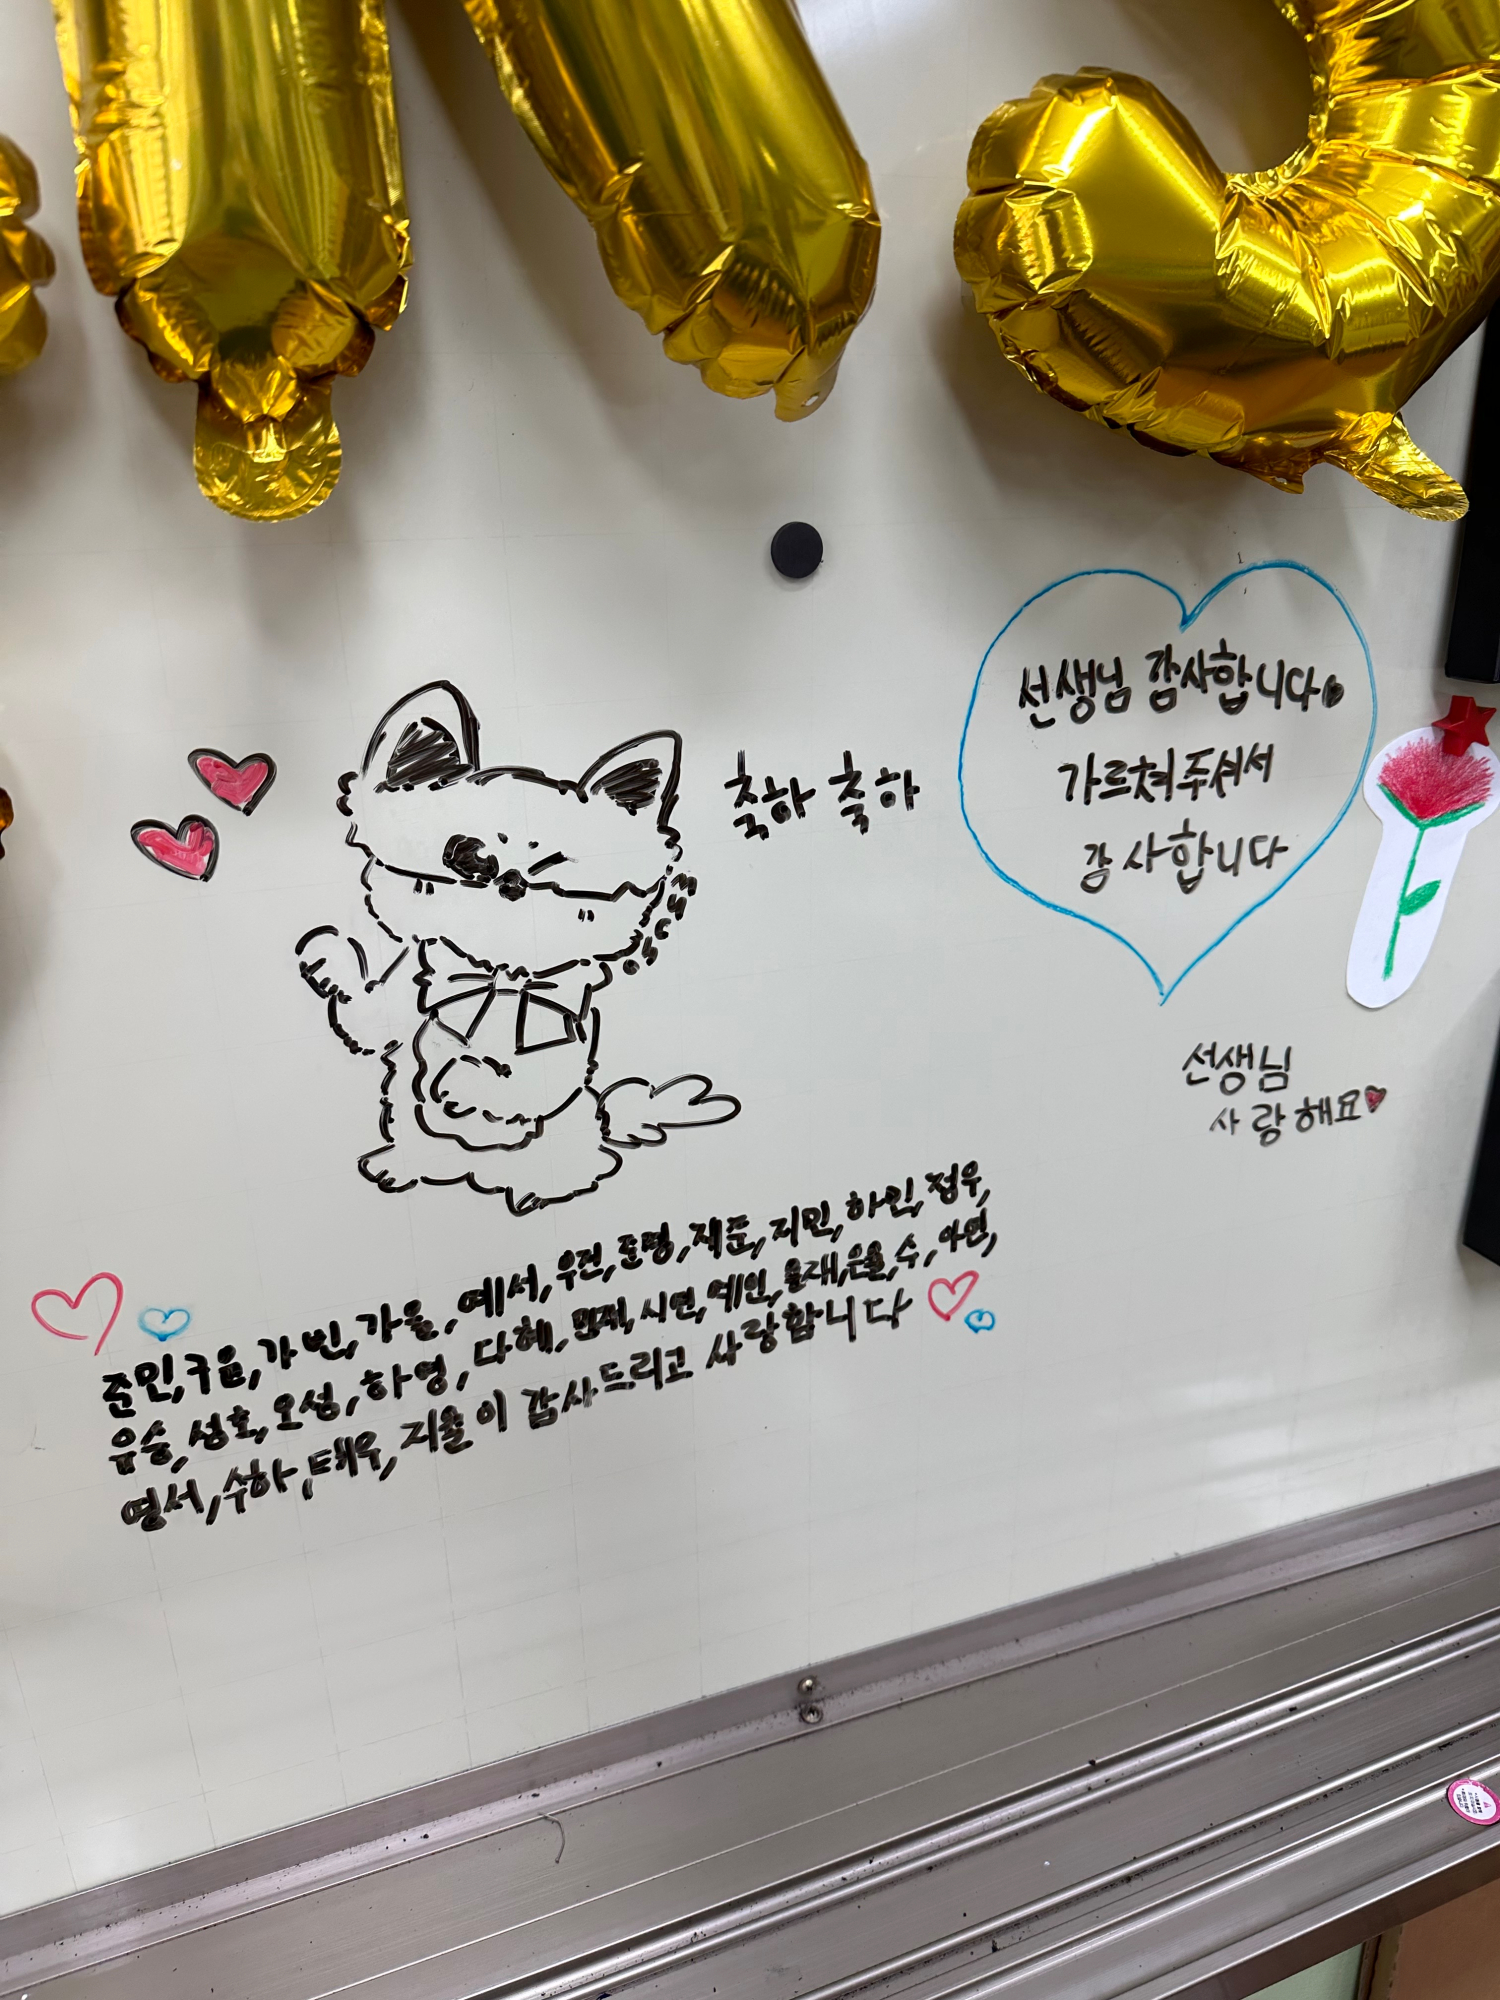 축하 축하
선생님 감사합니다
가르쳐주셔서
감사합니다
선생님
사랑해요
준민, 구윤, 가빈, 가율, 예서, 우건, 준명, 재준, 지민, 하인, 정우,
유승, 성호, 오성, 하영, 다혜, 민재, 시연, 예인, 율재, 은율, 수, 아연,
영서, 수하, 태우, 지율이 감사드리고 사랑합니다